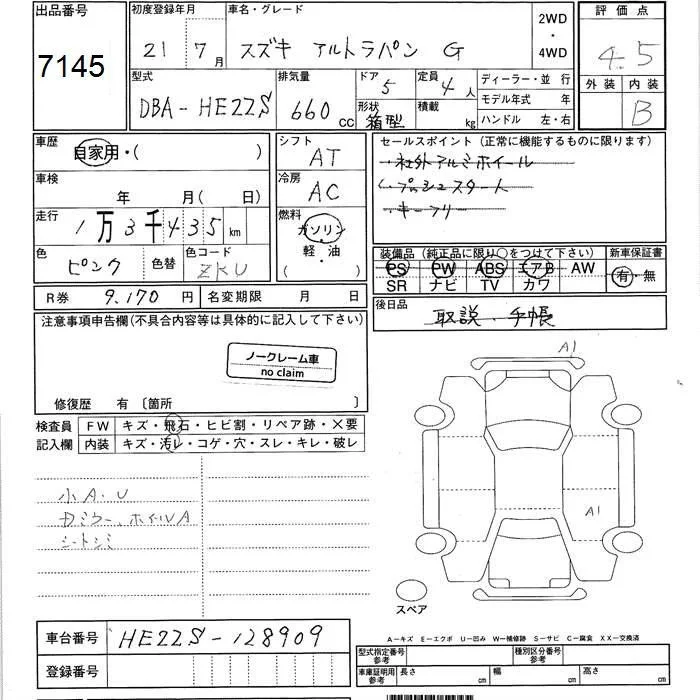 出品番号 初度登録年月 車名・グレード 2WD・4WD 評価点
7145 21 7月 スズキ アルトラパン G 4.5
型式 排気量 ドア 5 定員 4人 ディーラー・並行 外装 内装
DBA-HE22S 660cc 形状 箱型 積載 kg モデル年式 年 B
ハンドル 左・右
車歴 自家用・( ) シフト AT セールスポイント(正常に機能するものに限ります)
・社外アルミホイール
車検 年 月( 日) 冷房 AC ・プッシュスタート
・キーフリー
走行 1万3千435km 燃料 ガソリン・軽・油 ( )
色 ピンク 色替 色コード ZKU 装備品(純正品に限り○をつけて下さい) 新車保証書
PS PW ABS エアB AW 有・無
SR ナビ TV カワ
R券 9.170円 名変期限 月 日 後日品
取説・手帳
注意事項申告欄(不具合内容等は具体的に記入して下さい)
ノークレーム車
no claim
修復歴 有〔箇所 〕
検査員 FW キズ・飛石・ヒビ割・リペア跡・×要
記入欄 内装 キズ・汚レ・コゲ・穴・スレ・キレ・破レ
A1
A1
小A.U
ホイルA
シートシミ
スペア
車台番号 HE22S-128909
登録番号
A-キズ E-エクボ U-凹み W-補修跡 S-サビ C-腐食 XX-交換済
型式指定番号 参考 種別区分番号 参考
車庫証明用 参考 長さ cm 幅 cm 高さ cm